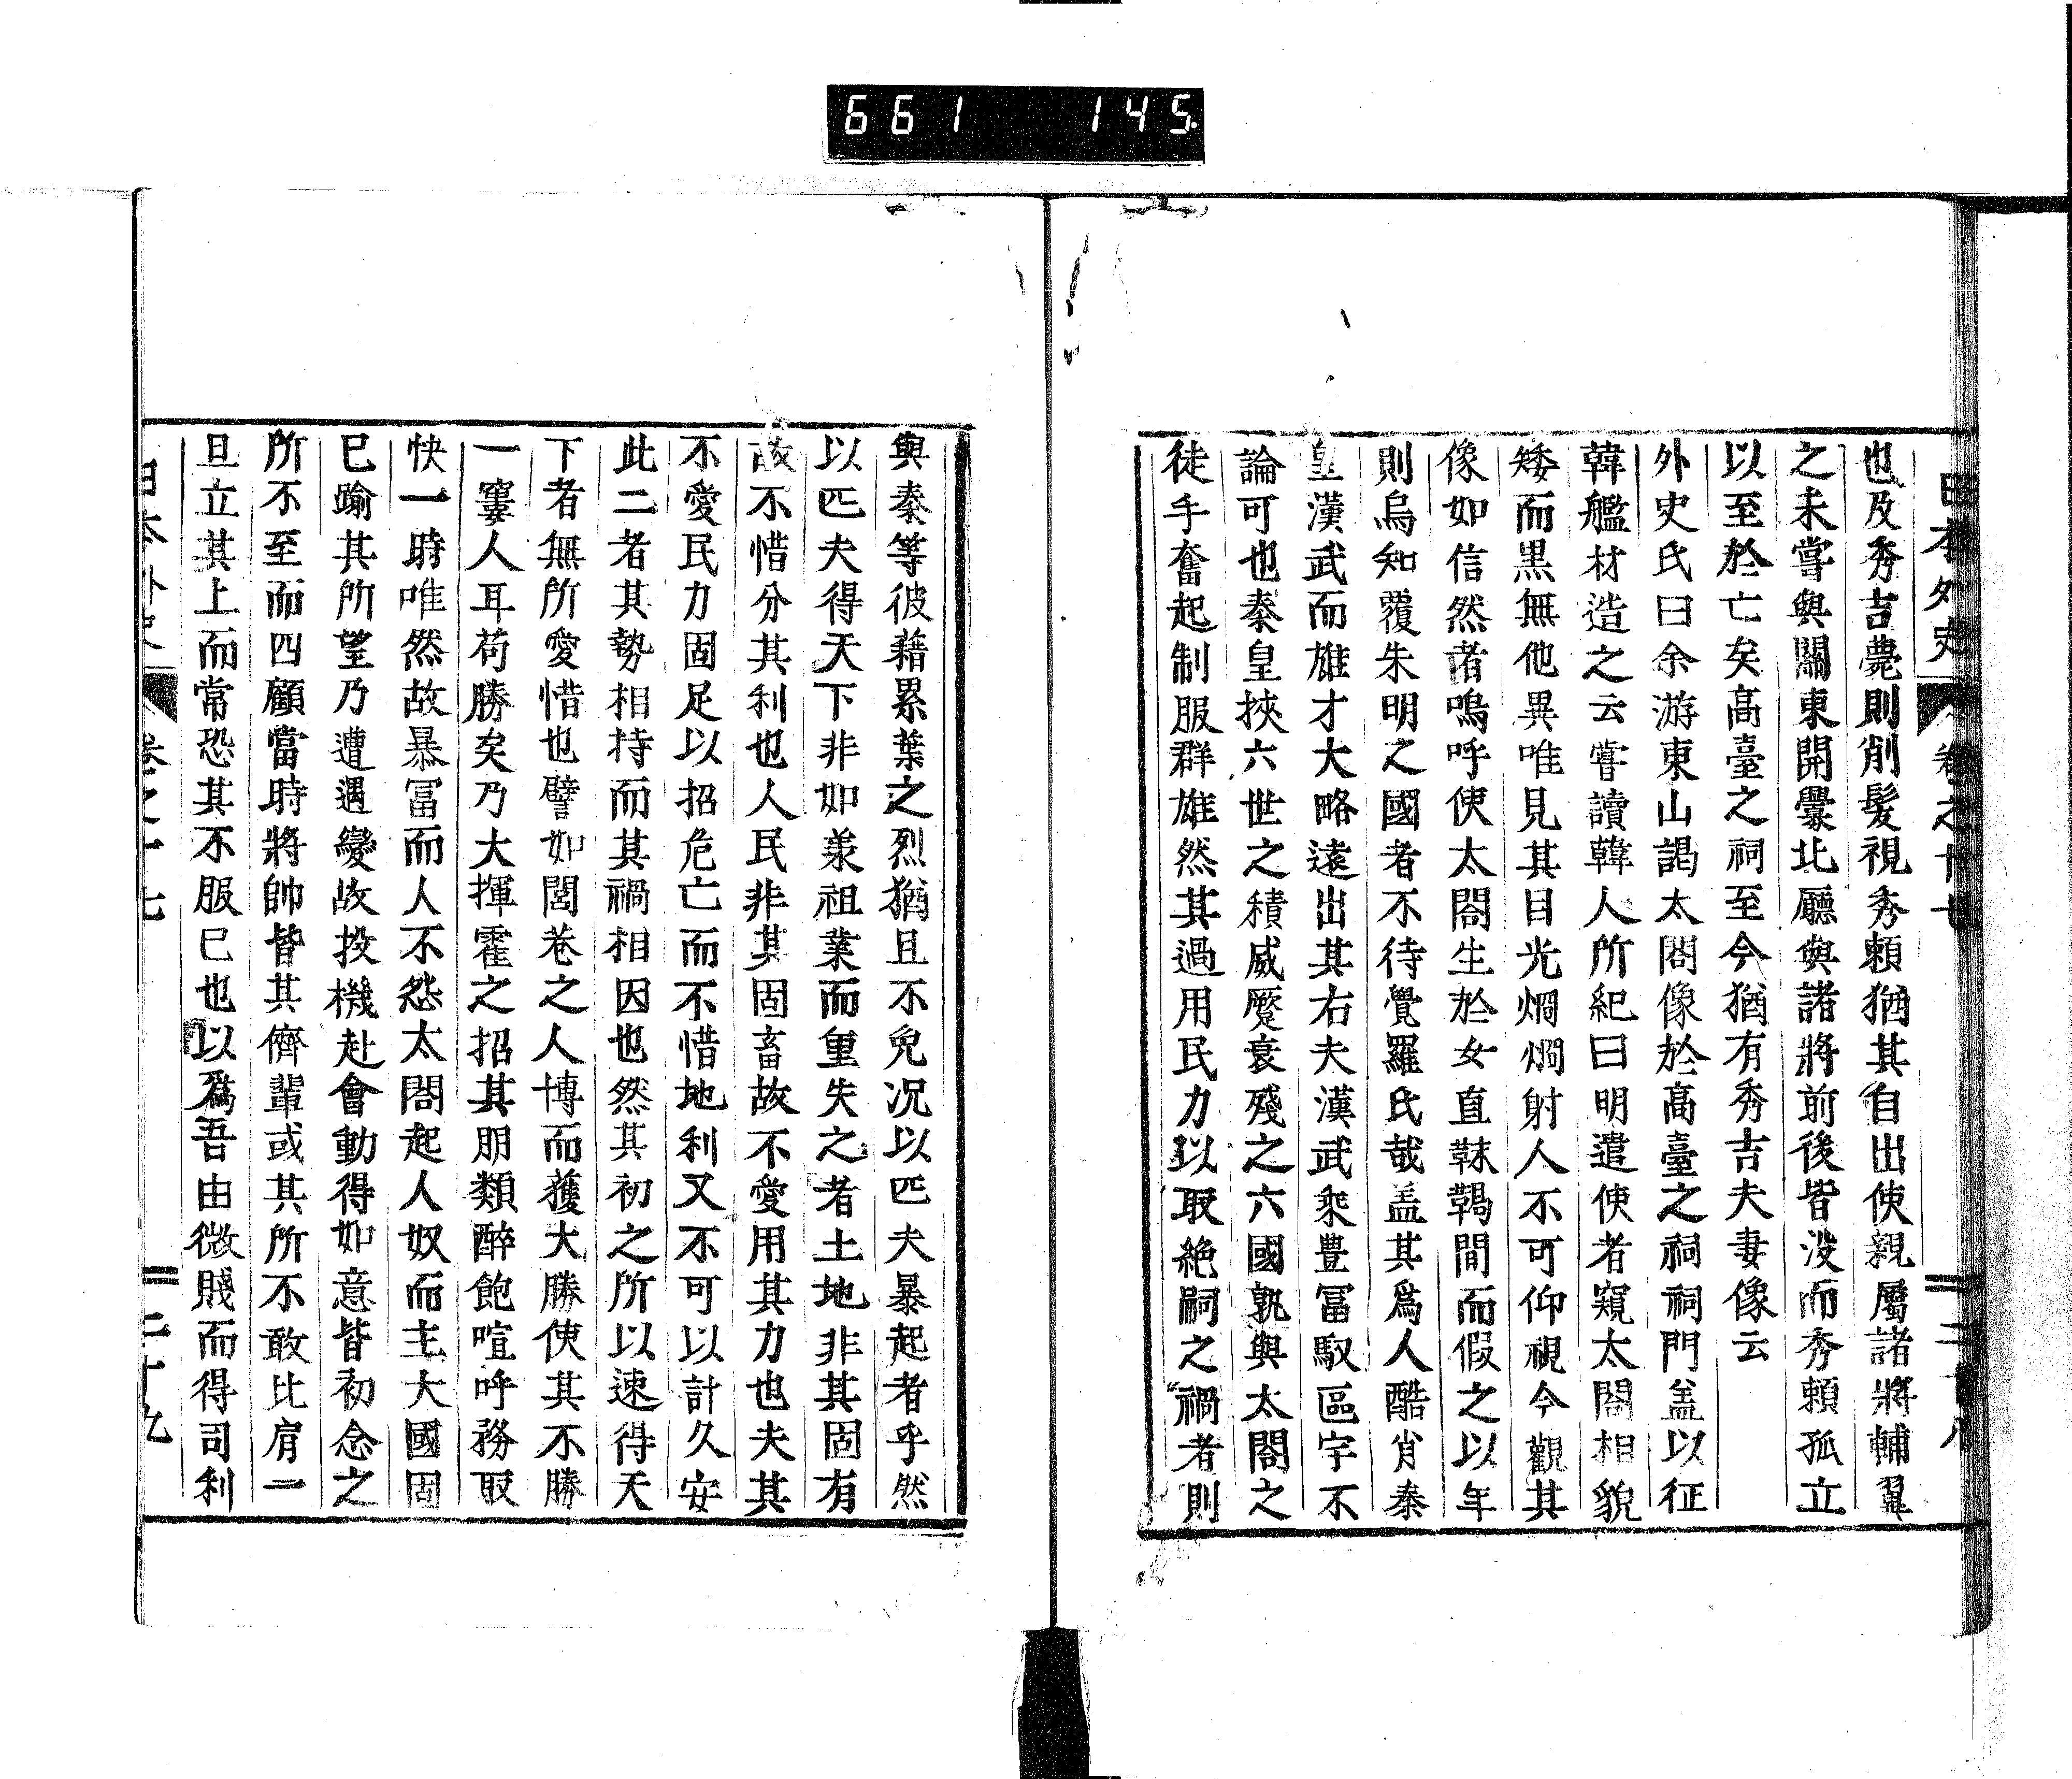 661 145
日本外史 卷之十七 二十八
也及秀吉薨則削髮視秀頼猶其自出使親屬諸將輔翼
之未嘗與關東開釁北廳與諸將前後皆沒而秀頼孤立
以至於亡矣高臺之祠至今猶有秀吉夫妻像云
外史氏曰余游東山謁太閤像於高臺之祠祠門盖以征
韓艦材造之云嘗讀韓人所紀曰明遣使者窺太閤相貌
矮而黒無他異唯見其目光烱烱射人不可仰視今觀其
像如信然者嗚呼使太閤生於女直靺鞨間而假之以年
則烏知覆朱明之國者不待覺羅氏哉盖其爲人酷肖秦
皇漢武而雄才大略遠出其右夫漢武乘豊冨馭區宇不
論可也秦皇挾六世之積威蹙衰殘之六國孰與太閤之
徒手奮起制服群雄然其過用民力以取絶嗣之禍者則
與秦等彼藉累葉之烈猶且不免况以匹夫暴起者乎然
以匹夫得天下非如承祖業而重失之者土地非其固有
故不惜分其利也人民非其固畜故不愛用其力也夫其
不愛民力固足以招危亡而不惜地利又不可以計久安
此二者其勢相持而其禍相因也然其初之所以速得天
下者無所愛惜也譬如閭巷之人博而獲大勝使其不勝
一窶人耳苟勝矣乃大揮霍之招其朋類醉飽喧呼務取
快一時唯然故暴冨而人不怨太閤起人奴而主大國固
已踰其所望乃遭遇變故投機赴會動得如意皆初念之
所不至而四顧當時將帥皆其儕輩或其所不敢比肩一
旦立其上而常恐其不服已也以爲吾由微賤而得司利
日本外史 卷之十七 二十九